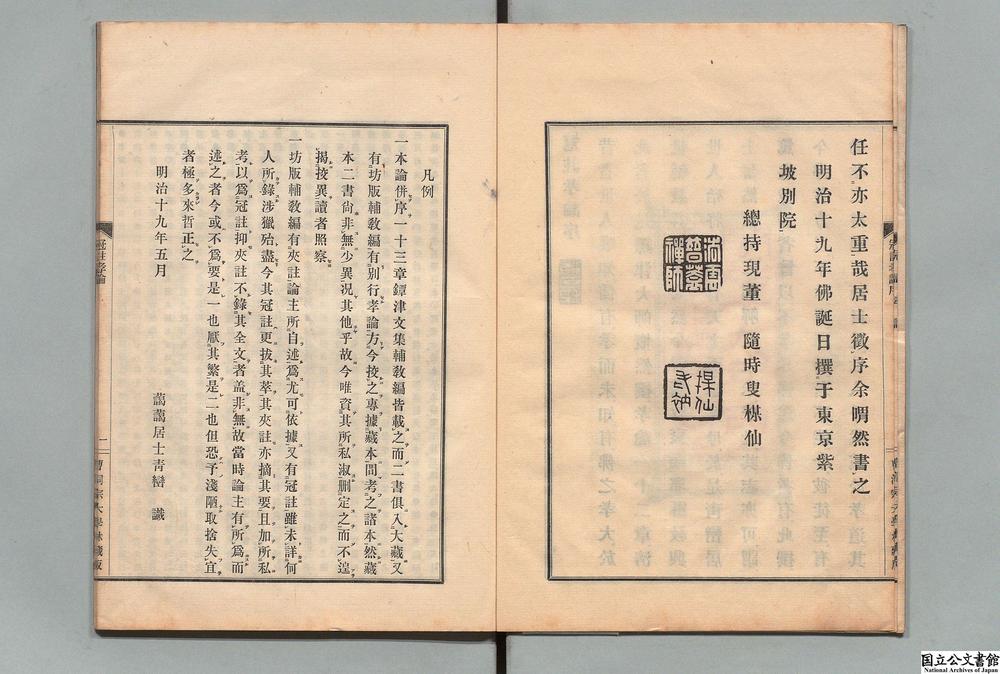 任不亦太重哉居士徵序余喟然書之
明治十九年佛誕日撰于東京紫
坡別院
總持現董 隨時叟楳仙
禪師
凡例
一本論併序一十三章鐔津文集輔教編皆載之而二書俱入大藏又
有坊版輔教編有別行孝論方今挍之專據藏本間考之諸本然藏
本二書尙非無少異况其他乎故今唯資其所私淑刪定之而不遑
揭挍異讀者照察
一坊版輔教編有夾註論主所自述爲尤可依據又有冠註雖未詳何
人所錄涉獵殆盡今其冠註更拔其萃其夾註亦摘其要且加所私
考以爲冠註抑夾註不錄其全文者盖非無故當時論主有所爲而
述之者今或不爲要是一也厭其繁是二也但恐予淺陋取捨失宜
者極多來哲正之
明治十九年五月
藹藹居士靑巒 識
冠註孝論
二
曹洞宗大學林藏版
国立公文書館
National Archives of Japan